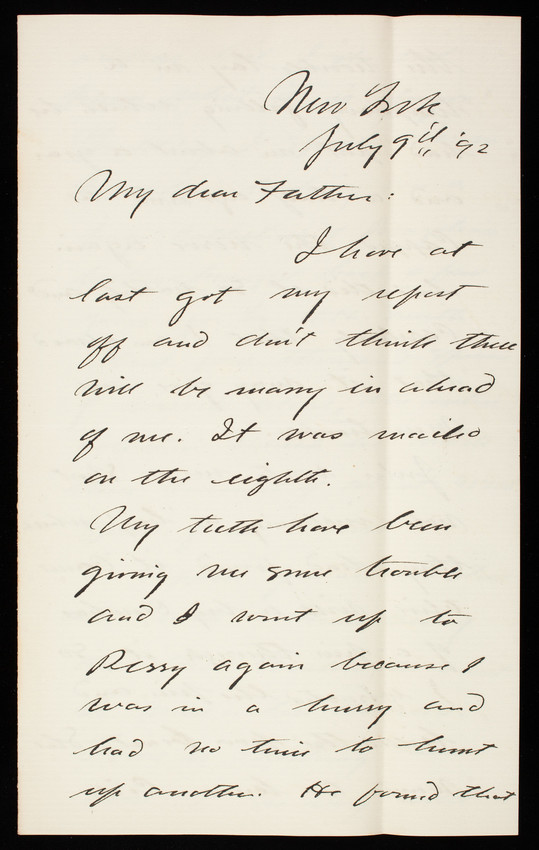 New York
July 9th '92
My dear Father:
I have at
last got my report
off and don't think there
will be many in ahead
of me. It was mailed
on the eighth.
My teeth have been
giving me some trouble
and I went up to
Perry again because I
was in a hurry and
had no time to hunt
up another. He found that